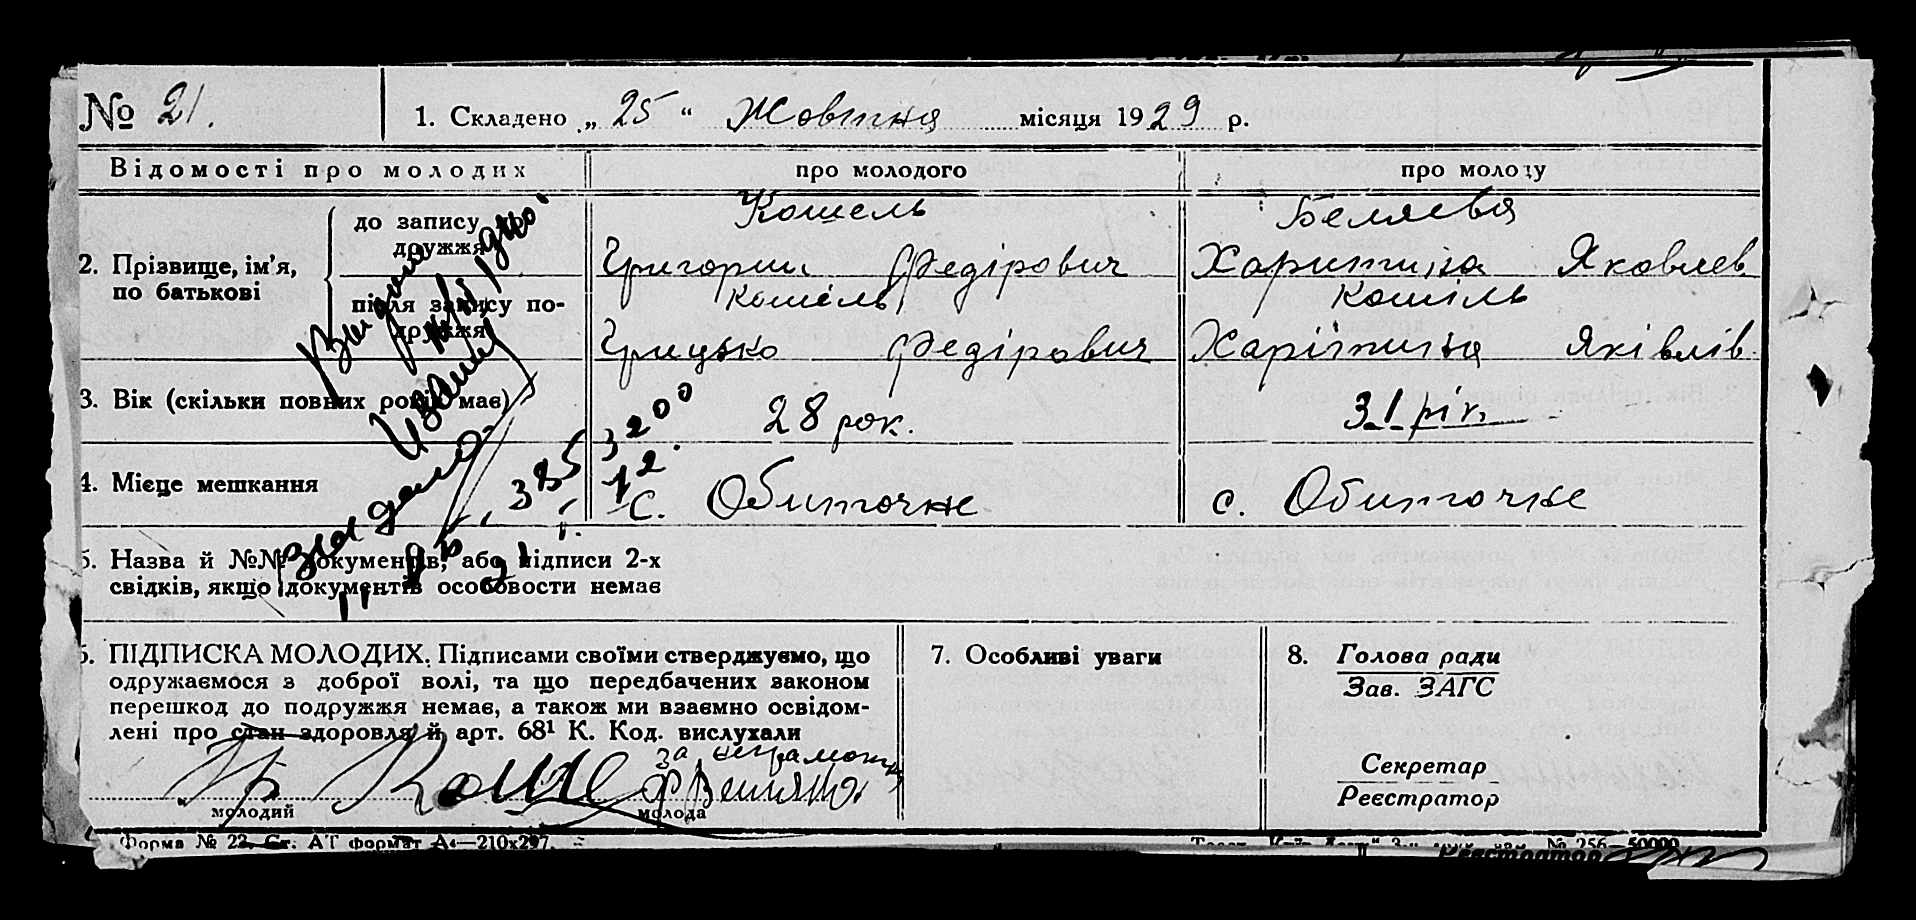 № 21. 1. Складено „ 25 “ Жовтня місяця 1929 р.
Відомості про молодих про молодого про молоду
Кошель Беляева
до запису по-
дружжя
2. Прізвище, ім’я, Григорий Федірович Харитина Яковлев
по батькові
Кошіль Кошіль
після запису по-
дружжя Грицько Федірович Харітина Яківлів
3. Вік (скільки повних років має) 28 рок. 31 рік.
3200
12.
4. Місце мешкання с. Обиточне с. Обиточне
Видано
385
5. Назва й №№ документів, або підписи 2-х
свідків, якщо документів особовости немає
6. ПІДПИСКА МОЛОДИХ. Підписами своїми стверджуємо, що
одружаємося з доброї волі, та що передбачених законом
перешкод до подружжя немає, а також ми взаємно освідом-
лені про стан здоровля й арт. 68¹ К. Код. вислухали
Гр Коше за
молодий молода
7. Особливі уваги
8. Голова ради
Зав. ЗАГС
Секретар
Реєстратор
Форма № 22. Ст. АТ формат А₄—210х297. № 256—50000
Реєстратор